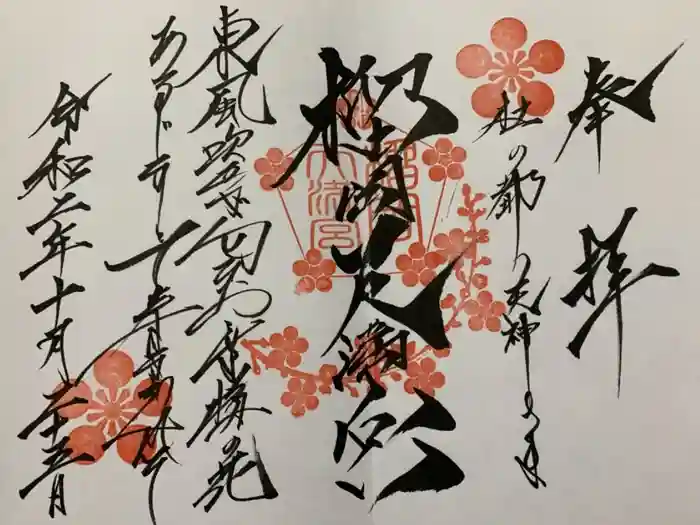 奉拝
杜の都の天神さま
榴岡天満宮
榴岡
天満宮
東風吹かば匂ひおこせよ梅の花
あるじなしとて春な忘れそ
令和二年十月二十五日